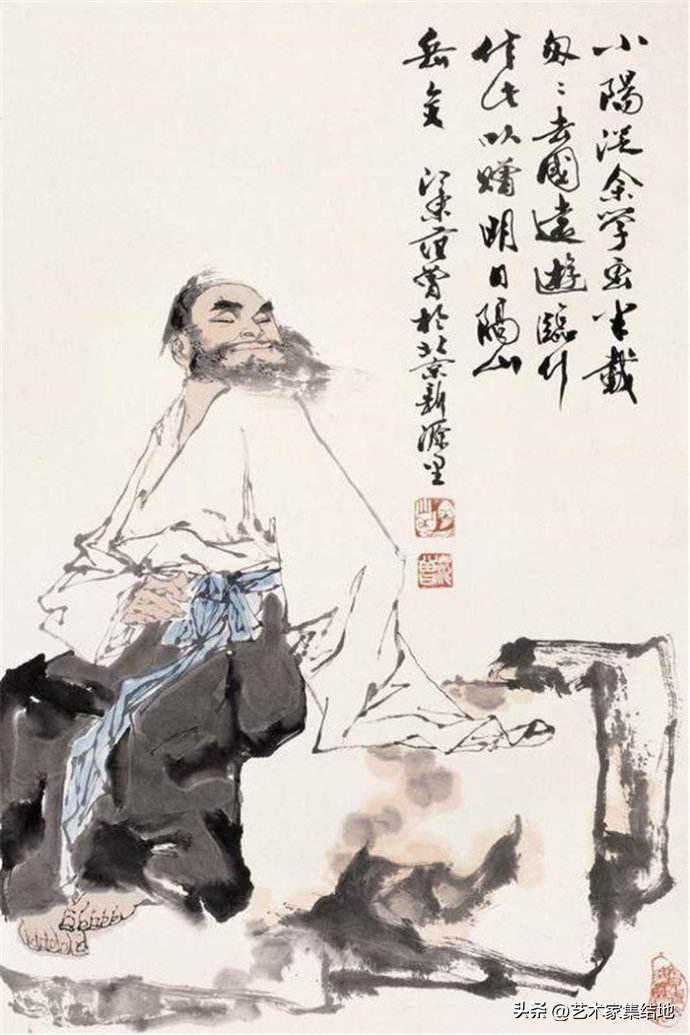 小陽從余学畫半載
匆〻去國遠遊臨行
作此以贈明日隔山
岳矣 江東范曾於北京新源里
头条 @艺术家集结地